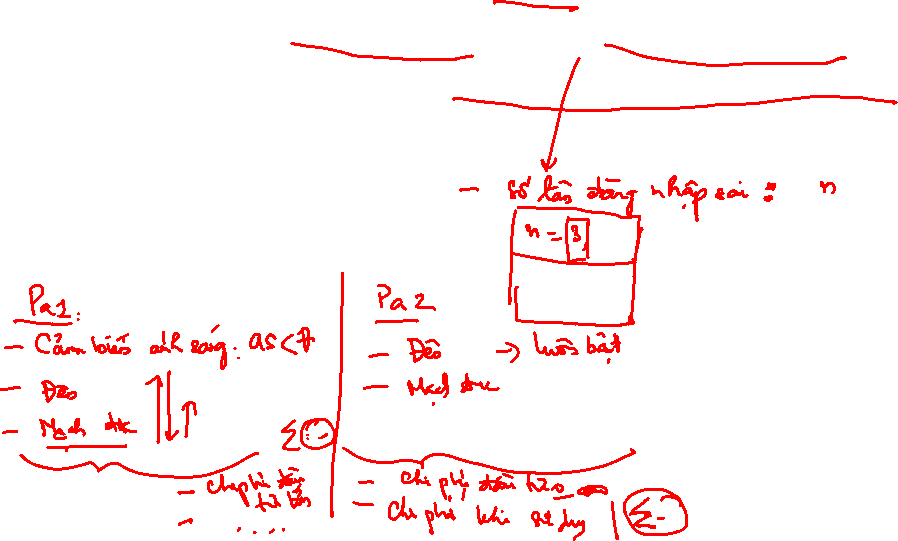 - số lần đăng nhập sai : n
n = 3
Pa1:
- Cảm biến ánh sáng: as <
- Đèo
- Mạch đk
Σ
- chi phí đầu
Pa2
- Đèo → luôn bật
- Mạch đk
- Chi phí đầu
- Chi phí khi sử dụng
Σ